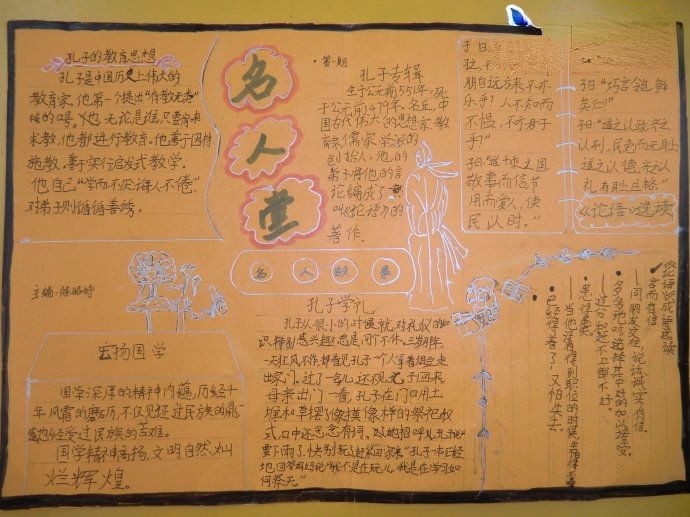 孔子的教育思想
孔子是中国历史上伟大的
教育家,他第一个提出"有教无类"
他都进行教育。他善于因材
施教。善于实行启发式教学。
他自己"学而不厌诲人不倦"
对弟子则循循善诱。
名人堂
·第一期
孔子专辑
生于公元前551年,死
于公元前479年。名丘,中
国古代伟大的思想家,教
育家,儒家学派的
创始人,他的
弟子将他的言
论编成了一
叫《论语》的
著作.
子曰
朋自远方来,不亦
乐乎?人不知而
不愠,不亦君子
乎"
子曰:"道千乘之国
敬事而信节
用而爱人,使
民以时。"
子曰:"巧言令色,鲜
矣仁!"
子曰:"道之以政,齐之
以刑,民免而无耻,
道之以德,齐之以
礼,有耻且格."
《论语》选读
名人故事
主编:陈
宏扬国学
国学深厚的精神内蕴,历经千
年风霜的磨历,不仅见证过民族的鼎
盛也经受过民族的苦难。
国学精神高扬,文明自然灿
烂辉煌。
孔子学礼
孔子从很小的时候就对礼仪的知
天狂风不作,母看见孔子一个人拿着俎豆走
出家门,过了一会儿还不见孔子回来
母亲出门一看,孔子在门口用土
堆和草摆像摸像样的祭祀仪
式,口中还念念有词.
要下雨了,快别玩了赶紧回家来"孔子一本正经
地回答妈妈说"我不是在玩儿,我是在学习如
何祭天。"
《论语》成语选读
·言而有信
—同朋友交往,说话诚实、有信。
—多多地听,选择其中好的加以接受。
—过分和达不上都不好。
·患得患失
—当他没有得到职位的时候,生怕得不
已经得着了,又怕失去